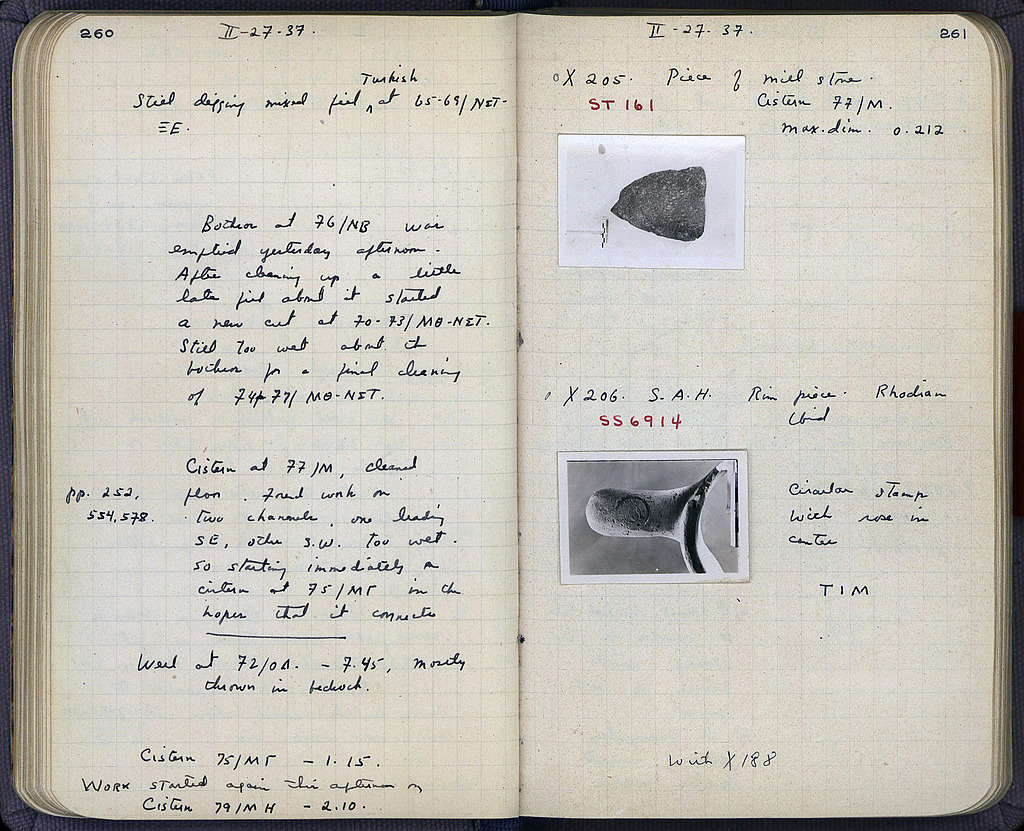 260
II-27-37.
Turkish
Still digging mixed fill ^ at 65-69/ΝΣΤ-
ΞΕ.
Bothros at 76/ΝΒ was
emptied yesterday afternoon.
After cleaning up a little
late fill about it started
a new cut at 70-73/ΜΘ-ΝΣΤ.
Still too wet about the
bothros for a final cleaning
of 74-77/ΜΘ-ΝΣΤ.
Cistern at 77/Μ, cleaned
pp. 252,
554, 578.
floor. Found work on
two channels, one leading
SE, other S.W. too wet.
So starting immediately on
cistern at 75/ΜΓ in the
hopes that it connects
Well at 72/ΟΔ. - 7.45, mostly
thrown in bedrock.
Cistern 75/ΜΓ - 1.15.
Work started again this afternoon on
Cistern 79/ΜΗ - 2.10.
II-27.37.
261
X 205. Piece of mill stone.
ST 161
Cistern 77/Μ.
max. dim. 0.212
X 206. S.A.H. Rim piece. Rhodian
SS 6914
Ibid
Circular stamp
with rose in
center
TIM
with X 188